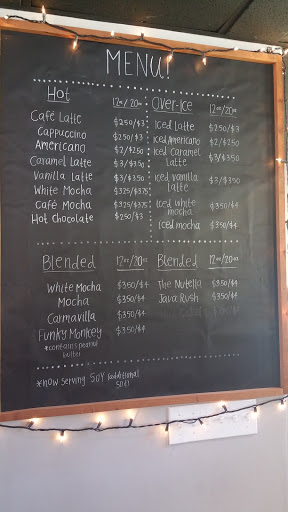 MENU!
Hot 12oz/20oz
Café Latte $2.50/$3
Cappuccino $2.50/$3
Americano $2/$2.50
Caramel Latte $3/$3.50
Vanilla Latte $3/$3.50
White Mocha $3.25/$3.75
Café Mocha $3.25/$3.75
Hot Chocolate $2.50/$3
Over-Ice 12oz/20oz
Iced Latte $2.50/$3
Iced Americano $2/$2.50
Iced Caramel
Latte $3/$3.50
Iced Vanilla
Latte $3/$3.50
Iced White
Mocha $3.50/$4
Iced Mocha $3.50/$4
Blended 12oz/20oz
White Mocha $3.50/$4
Mocha $3.50/$4
Carmavilla $3.50/$4
Funky Monkey $3.50/$4
*contains peanut
butter
Blended 12oz/20oz
The Nutella $3.50/$4
Java Rush $3.50/$4
*now serving SOY (additional
50¢)